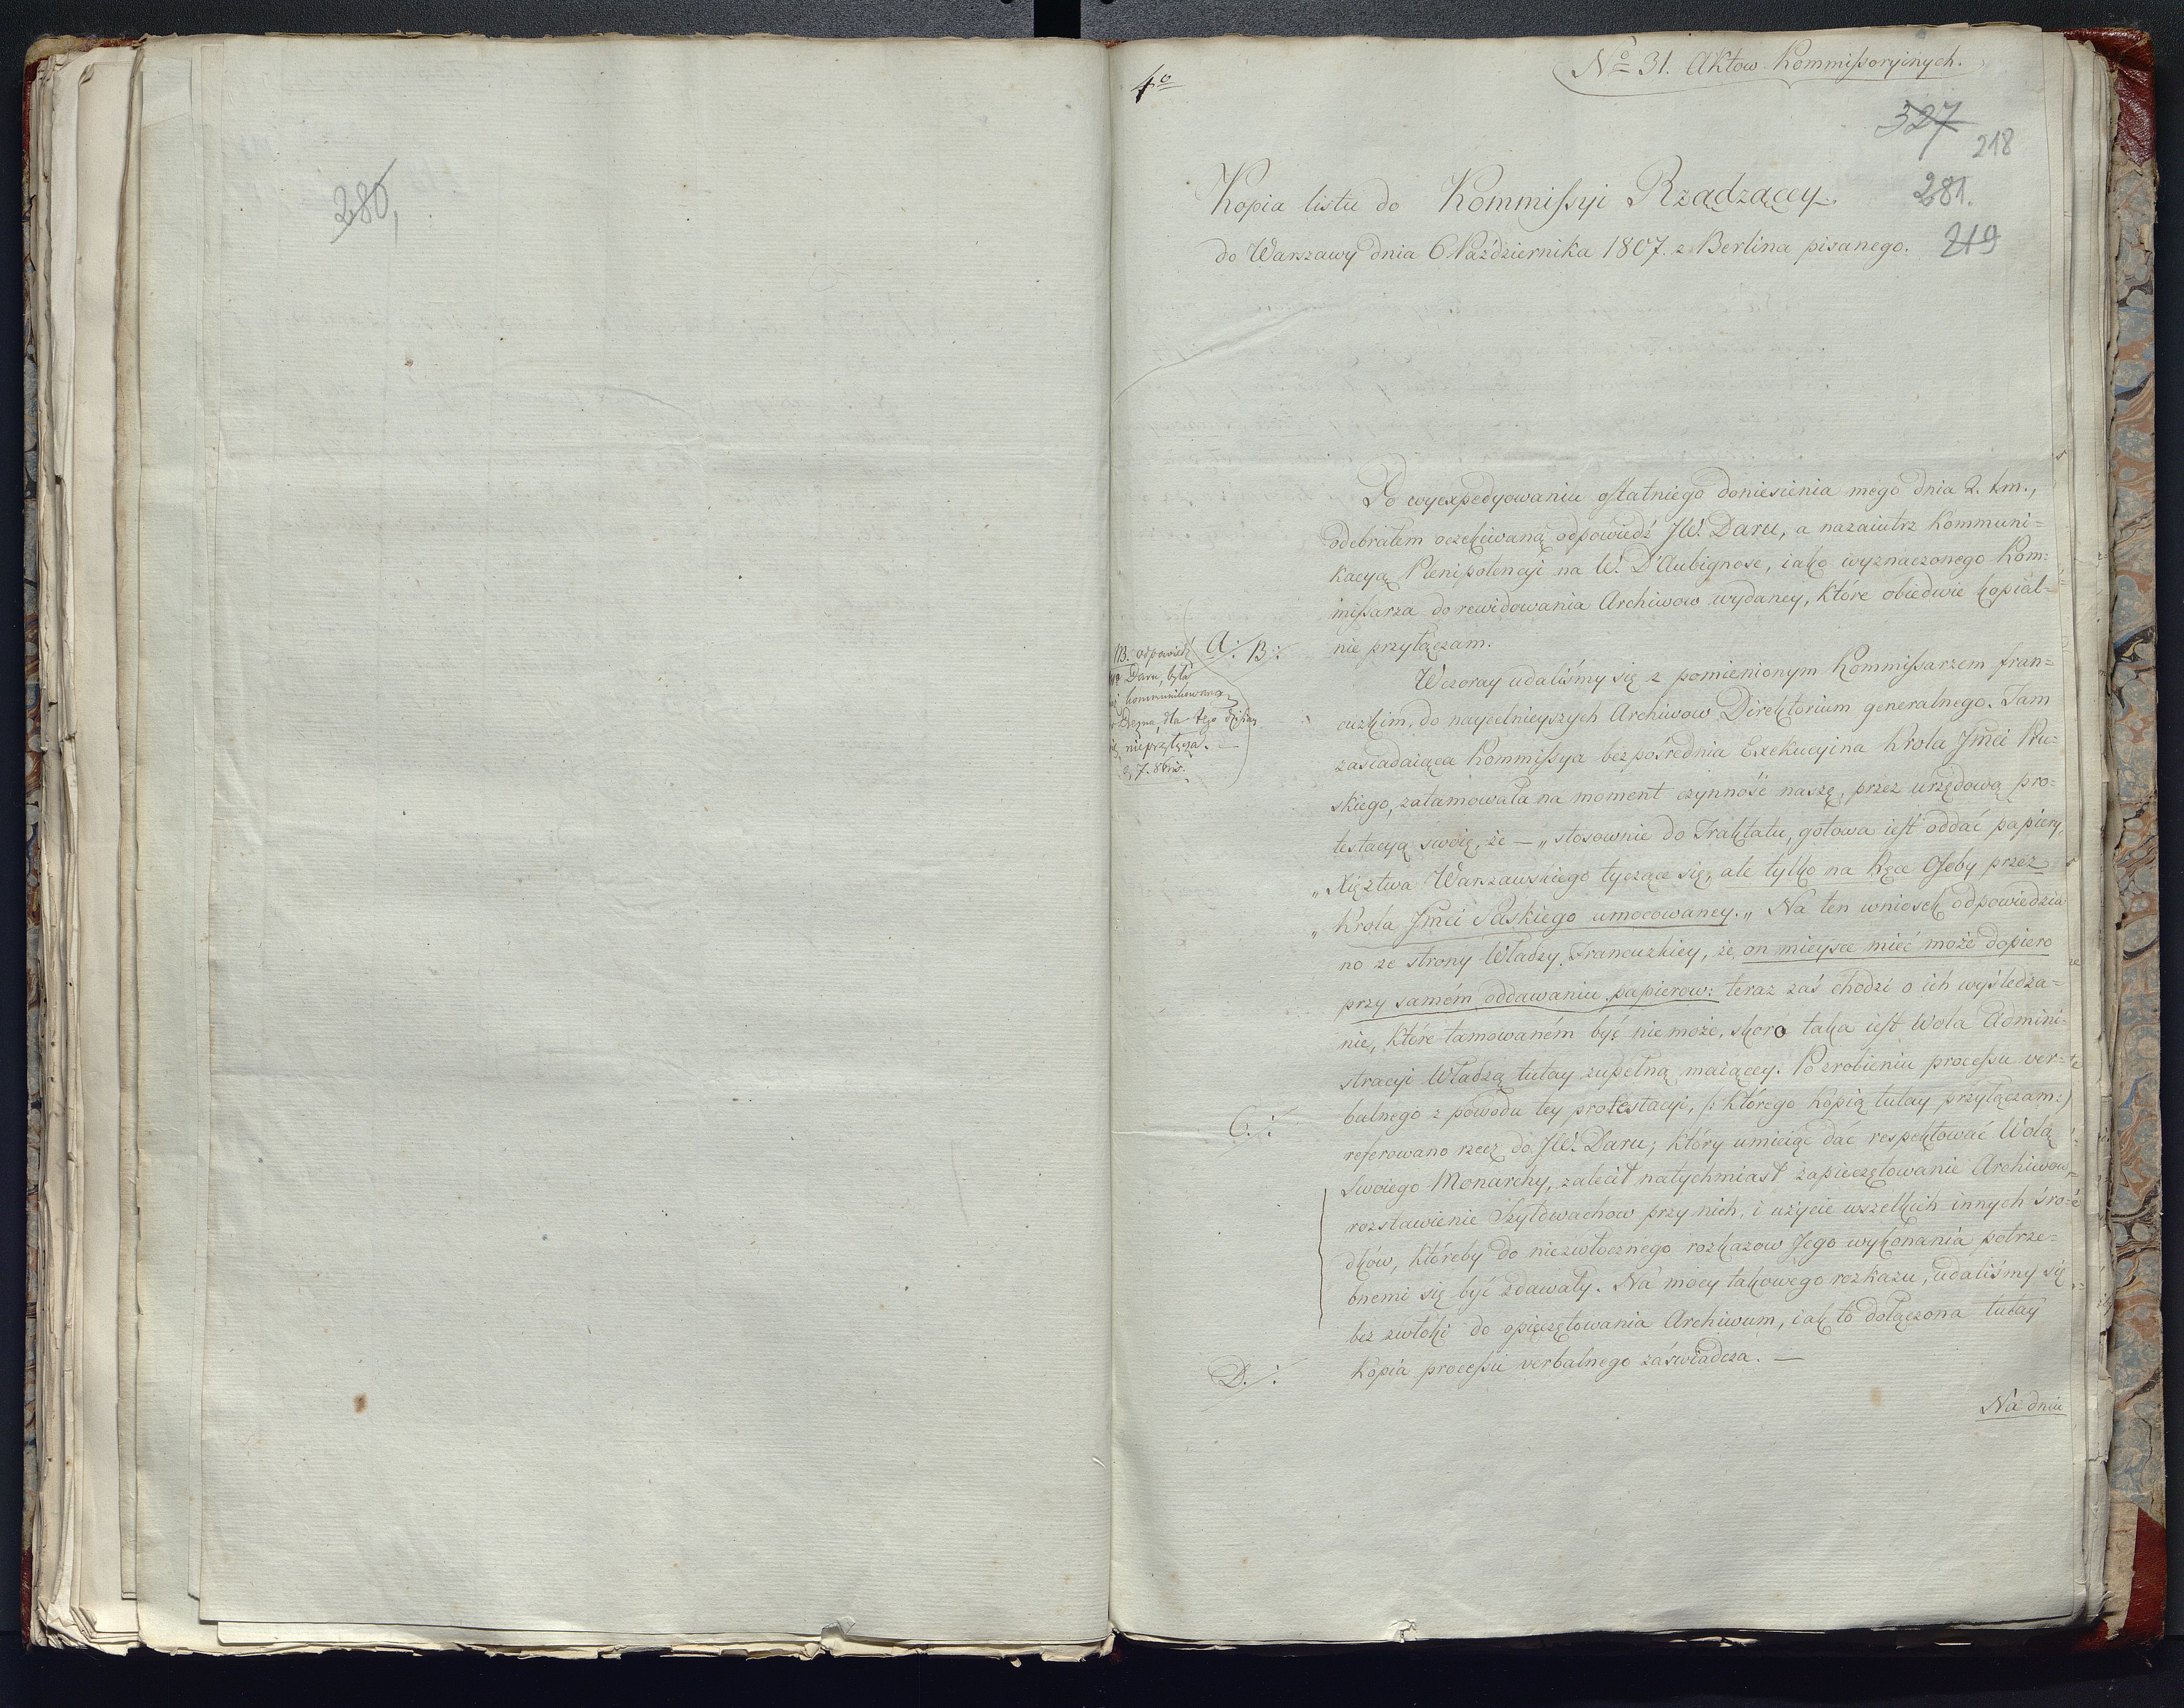 280,
4o
No 31. Aktow Kommissoryinych.
327
218
281.
219
Kopia listu do Kommissyi Rządzącey.
do Warszawy dnia 6 Października 1807. z Berlina pisanego.
Po wyexpedyowaniu ostatniego doniesienia mego dnia 2. t.m.,
odebrałem oczekiwaną odpowiedź JW. Daru, a nazaiutrz kommuni=
kacyą Plenipotencyi na W. D'Aubignosc, iako wyznaczonego Kom=
missarza do rewidowania Archiwow wydaney, które obiedwie kopial=
nie przyłączam.
A ./: B ./:
NB. odpowiedź
Daru, była
kommunikowana
dla tego
się nieprzyłącza.
Wczoray udaliśmy się z pomienionym Kommissarzem fran=
cuzkim, do naycelnieyszych Archiwow Direktorium generalnego. Tam
zasiadaiąca Kommissya bezpośrednia Exekucyina Krola Jmci Pru=
skiego, zatamowała na moment czynność naszę, przez urzędową pro=
testacyą swoię, że — „stosownie do Traktatu, gotowa iest oddać papiery,
„Xięztwa Warszawskiego tyczące się, ale tylko na Ręce Osoby przez
„Krola Jmci Saskiego umocowaney.„ Na ten wniosek odpowiedzia
no ze strony Władzy Francuzkiey, że on mieysce mieć może dopiero
przy samém oddawaniu papierow: teraz zaś chodzi o ich wyśledza=
nie, które tamowaném być niemoże, skoro taka iest Wola Admini=
stracyi Władzą tutay zupełną maiącey. Po zrobieniu processu ver=
balnego z powodu tey protestacyi, (: którego kopią tutay przyłączam:)
C. ./:
referowano rzecz do JW. Daru; który umieiąc dać respektować Wolą
Swoiego Monarchy, zalecił natychmiast zapieczętowanie Archiwow,
rozstawienie Szyldwachow przy nich, i użycie wszelkich innych śro=
dków, któreby do niezwłocznego rozkazow Jego wykonania potrze=
bnemi się być zdawały. Na mocy takowego rozkazu, udaliśmy się
bez zwłoki do opieczętowania Archiwum, iak to dołączona tutay
D. ./:
Kopia processu verbalnego záświadcza. —
Na dniu